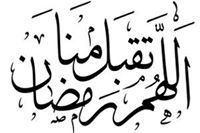 اللَّهُمَّ تقبل منا
رمضان